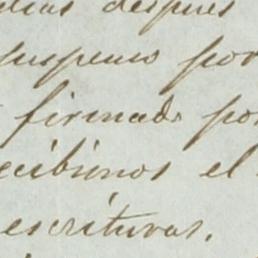 dias despues
suspenso por
firmado por
recibimos el
escrituras.